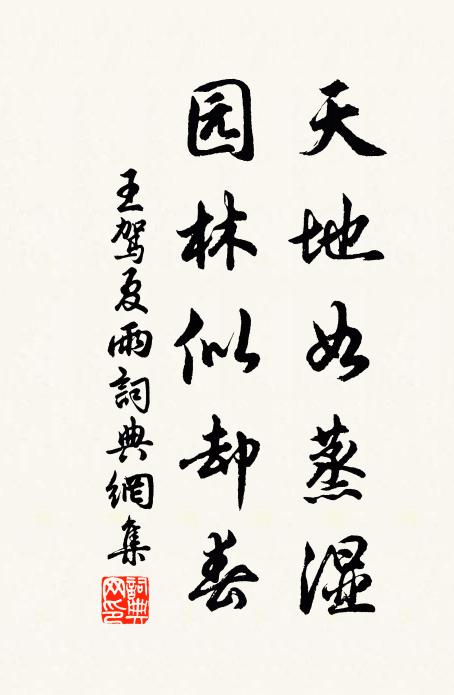 天地如蒸湿
园林似却春
王驾夏雨詞典網集
詞典网印